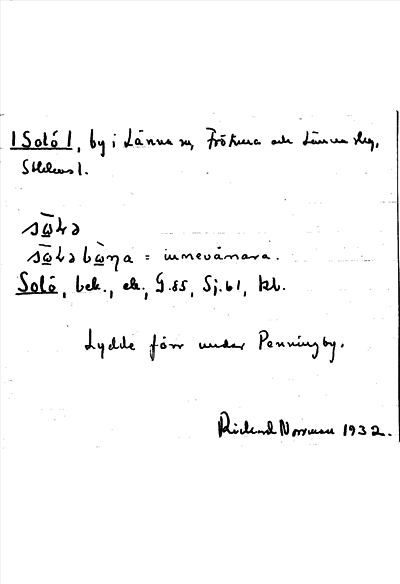 [Solö], by i Länna sn, Frötuna och Länna skg,
Sthlms l.
sω̄ɫə
sω̄ɫəbω̄ηa = innevånarna.
Solö, bek., ek., G.85, Sj.61, kb.
Lydde förr under Penningby.
Rickard Norrman 1932.